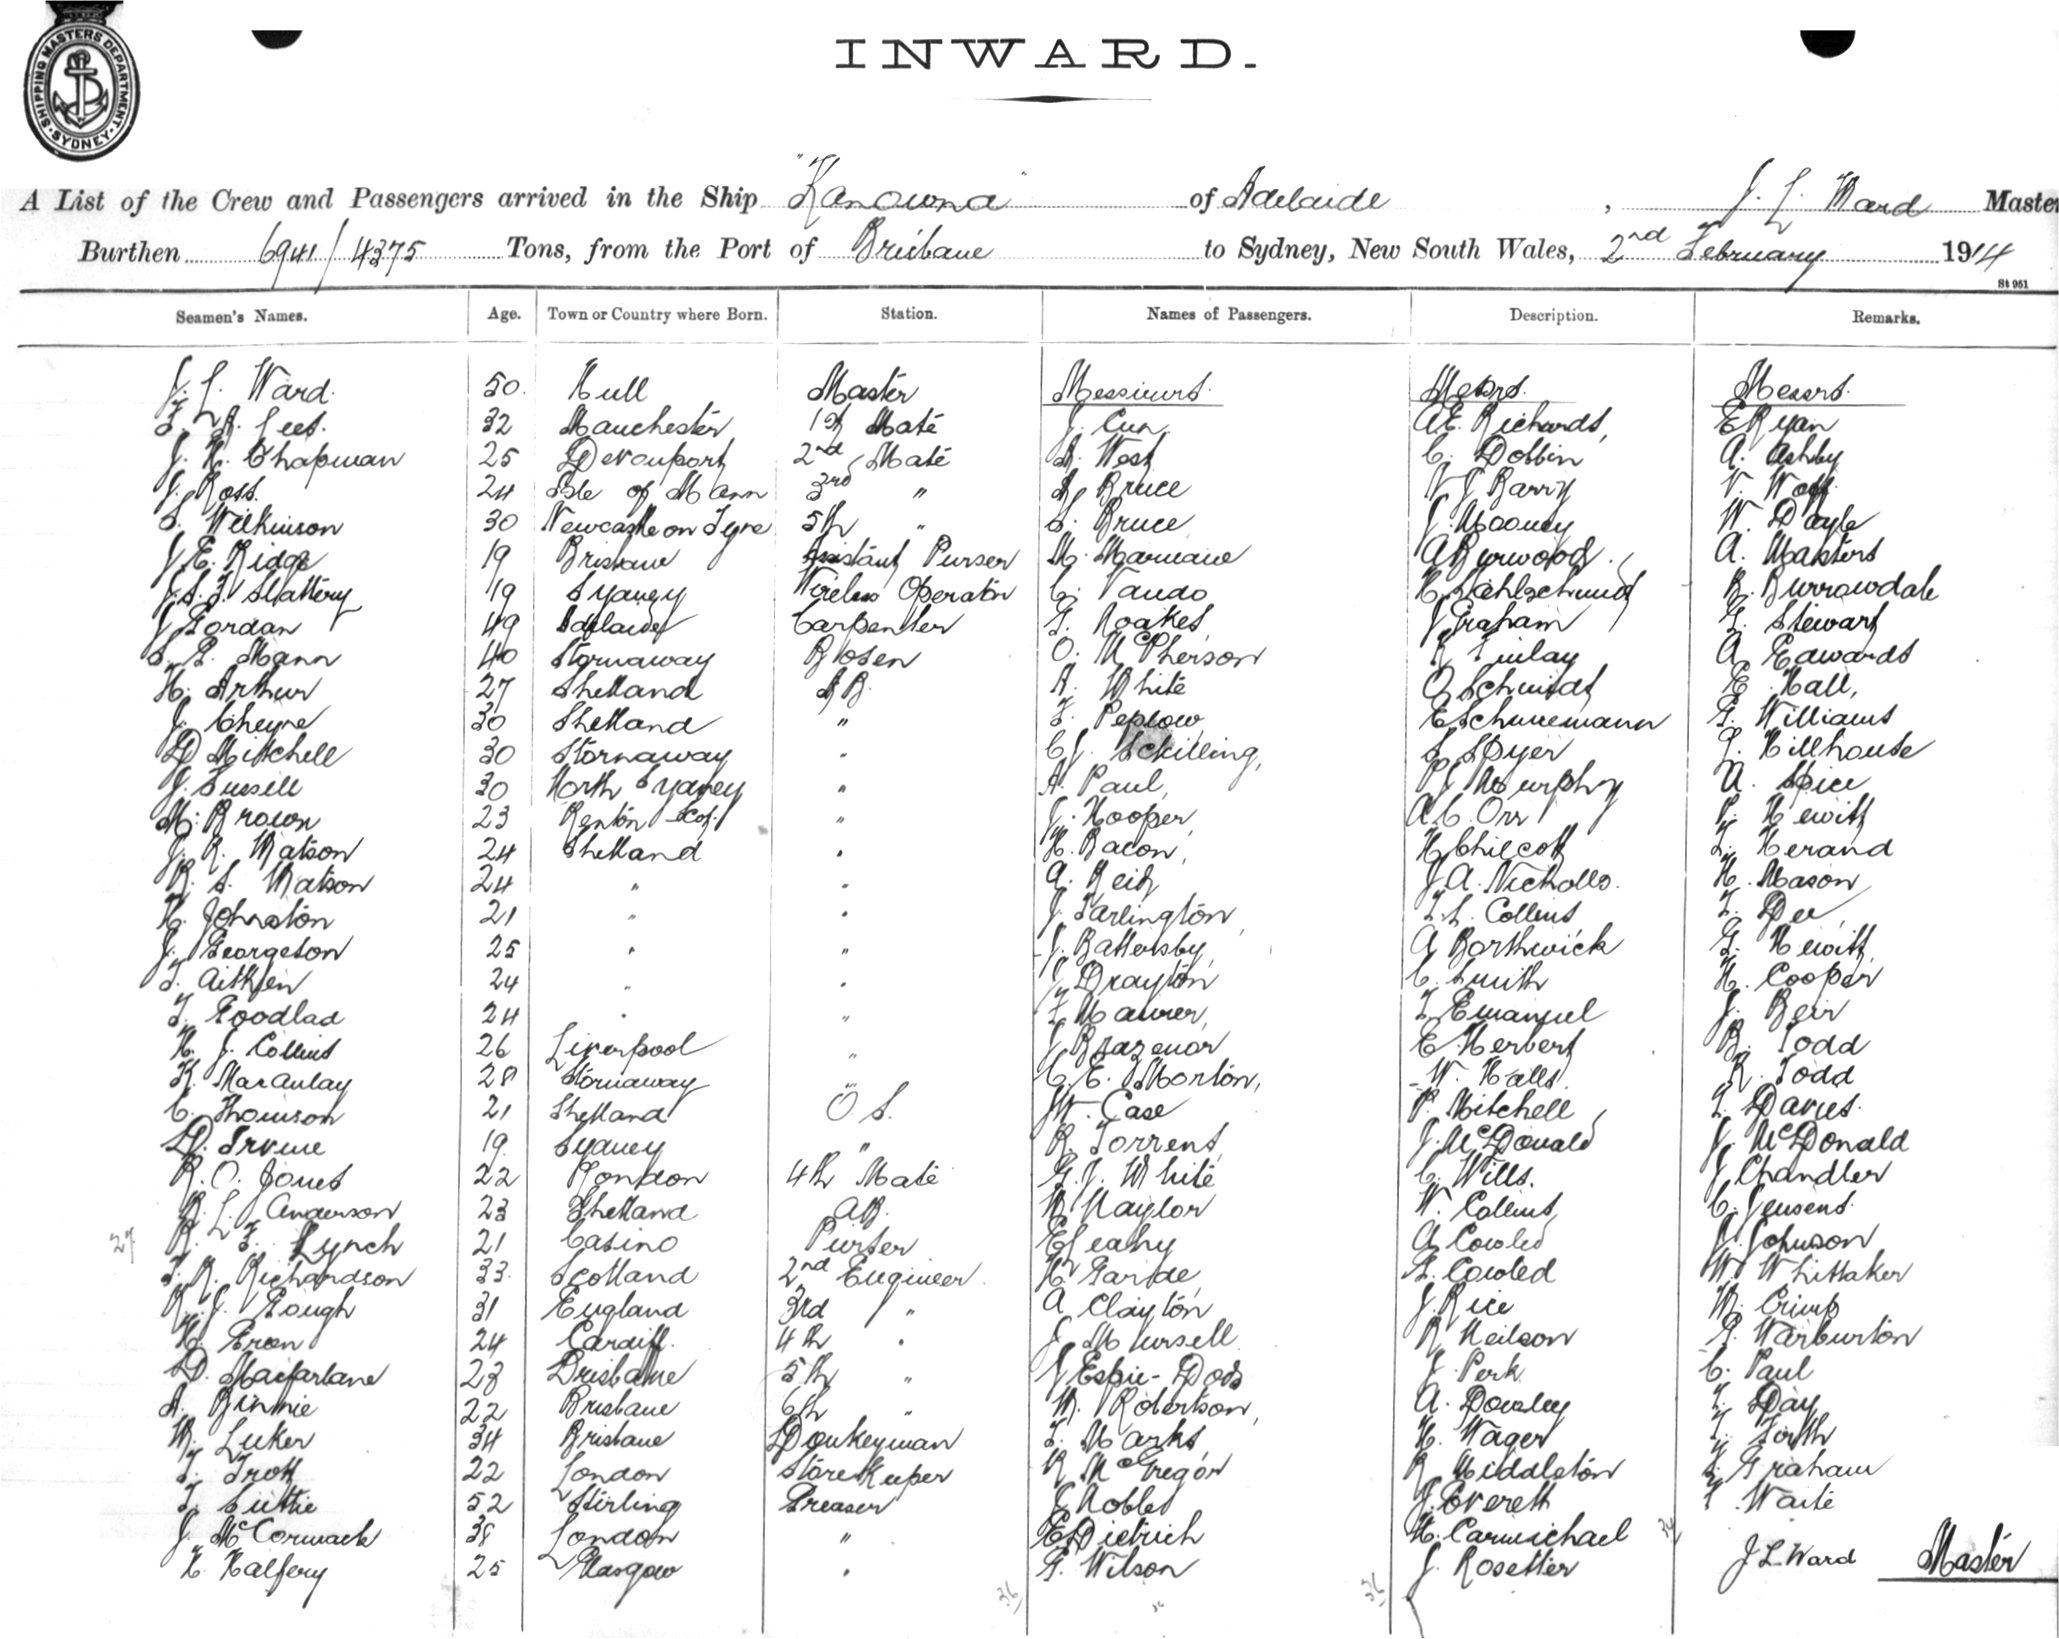 SHIPPING MASTERS DEPARTMENT. SYDNEY
INWARD.
A List of the Crew and Passengers arrived in the Ship "Kanowna" of Adelaide, J. L. Ward Master
Burthen 6941/4375 Tons, from the Port of Brisbane to Sydney, New South Wales, 2nd February 1914
St 951
Seamen's Names. Age. Town or Country where Born. Station. Names of Passengers. Description. Remarks.
J. L. Ward 50 Hull Master Messieurs Messrs. Messrs.
Lees. 32 Manchester 1st Mate J. A.E. Richards, E Ryan
J. H. Chapman 25 Devonport 2nd Mate A. West C. Dobbin A. Ashby
J. Ross. 24 Isle of Mann 3rd " A. Bruce Barry V.
S. Wilkinson 30 Newcastle on Tyne 5th " S. Bruce J. Mooney W. Doyle
J. E. Ridge 19 Brisbane Assistant Purser M. A Burwood A. Masters
J. S. F. Slattery 19 Sydney Wireless Operator C. Vando H. R. Burrowdale
J Jordan 49 Adelaide Carpenter G. Noakes J Graham G. Stewart
Mann 40 Stornaway Bosen O. McPherson R Finlay A. Edwards
H. Arthur 27 Shetland AB. A. White O Schmidt E. Hall,
J. Cheyne 30 Shetland " F. Peplow E Schunemann G. Williams
D Mitchell 30 Stornaway " C J. Schilling, S. Dyer J. Hillhouse
J. 30 North Sydney " A. Paul, P J Murphy A. Spice
M. Brown 23 Renton Scot. " J. Hooper, A. C. Orr P. Hewitt
J. R. Watson 24 Shetland " H. Bacon, H Chilcott Herand
R. S. Watson 24 " " A. Reid, J A. Nicholls. H. Mason
H. Johnston 21 " " J. Tarlington, T. L. Collins T. Dee,
J. Georgeson 25 " " J. Battersby, A Borthwick G. Hewitt,
T. Aitken 24 " " Drayton, C. Smith H. Cooper
T. Goodlad 24 " " Maurer, Emanuel J. Beir
H. J. Collins 26 Liverpool " J Brazenor E. Herbert R. Todd
K. MacAulay 28 Stornaway C. E. Morton, W. Halls. R. Todd
C. Thomson 21 Shetland O S. W. Case P. Mitchell, Davies.
D. Irvine 19 Sydney " R. Torrens, J. McDonald J. McDonald
R. O. Jones 22 London 4th Mate G. J. White C. Wills. J Chandler
R. L. Anderson 23 Shetland AB. W Naylor W. Collins, C. Jensens.
27. R. L. F. Lynch 21 Casino Purser E Leahy A Cowled J. Johnson
R. Richardson 33. Scotland 2nd Engineer H. Garide, Cowled W. Whittaker
R. J. Gough 31 England 3rd " A Clayton, J. Rice W. Crimp
H. Gron 24 Cardiff. 4th " J. Mursell R Neilson Warburton
D. Macfarlane 23 Brisbane 5th " J Espie-Dods J. Perk C. Paul
A. Binnie 22 Brisbane 6th " W. Robertson, A. Dowsley Day
W. Luker 34 Brisbane Donkeyman Marks, H. Wager Forth
Trott 22 London StoreKeeper R McGregor R Middleton Graham
Suttie 52 Stirling Greaser E Nobbs J. Everett Waite
J. McCormack 38 London " E Dietrich H. Carmichael 34 J L Ward Master
H. Halfery 25 Glasgow " G. Wilson J. Rosetter
36 36